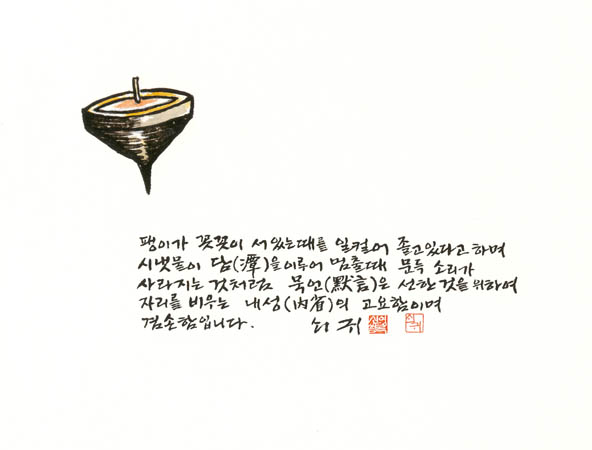 팽이가 꼿꼿이 서있는때를 일컬어 졸고있다고 하며
시냇물이 담(潭)을 이루어 멈출때 문득 소리가
사라지는 것처럼 묵언(默言)은 선한 것을 위하여
자리를 비우는 내성(內省)의 고요함이며
겸손함입니다. 쇠귀